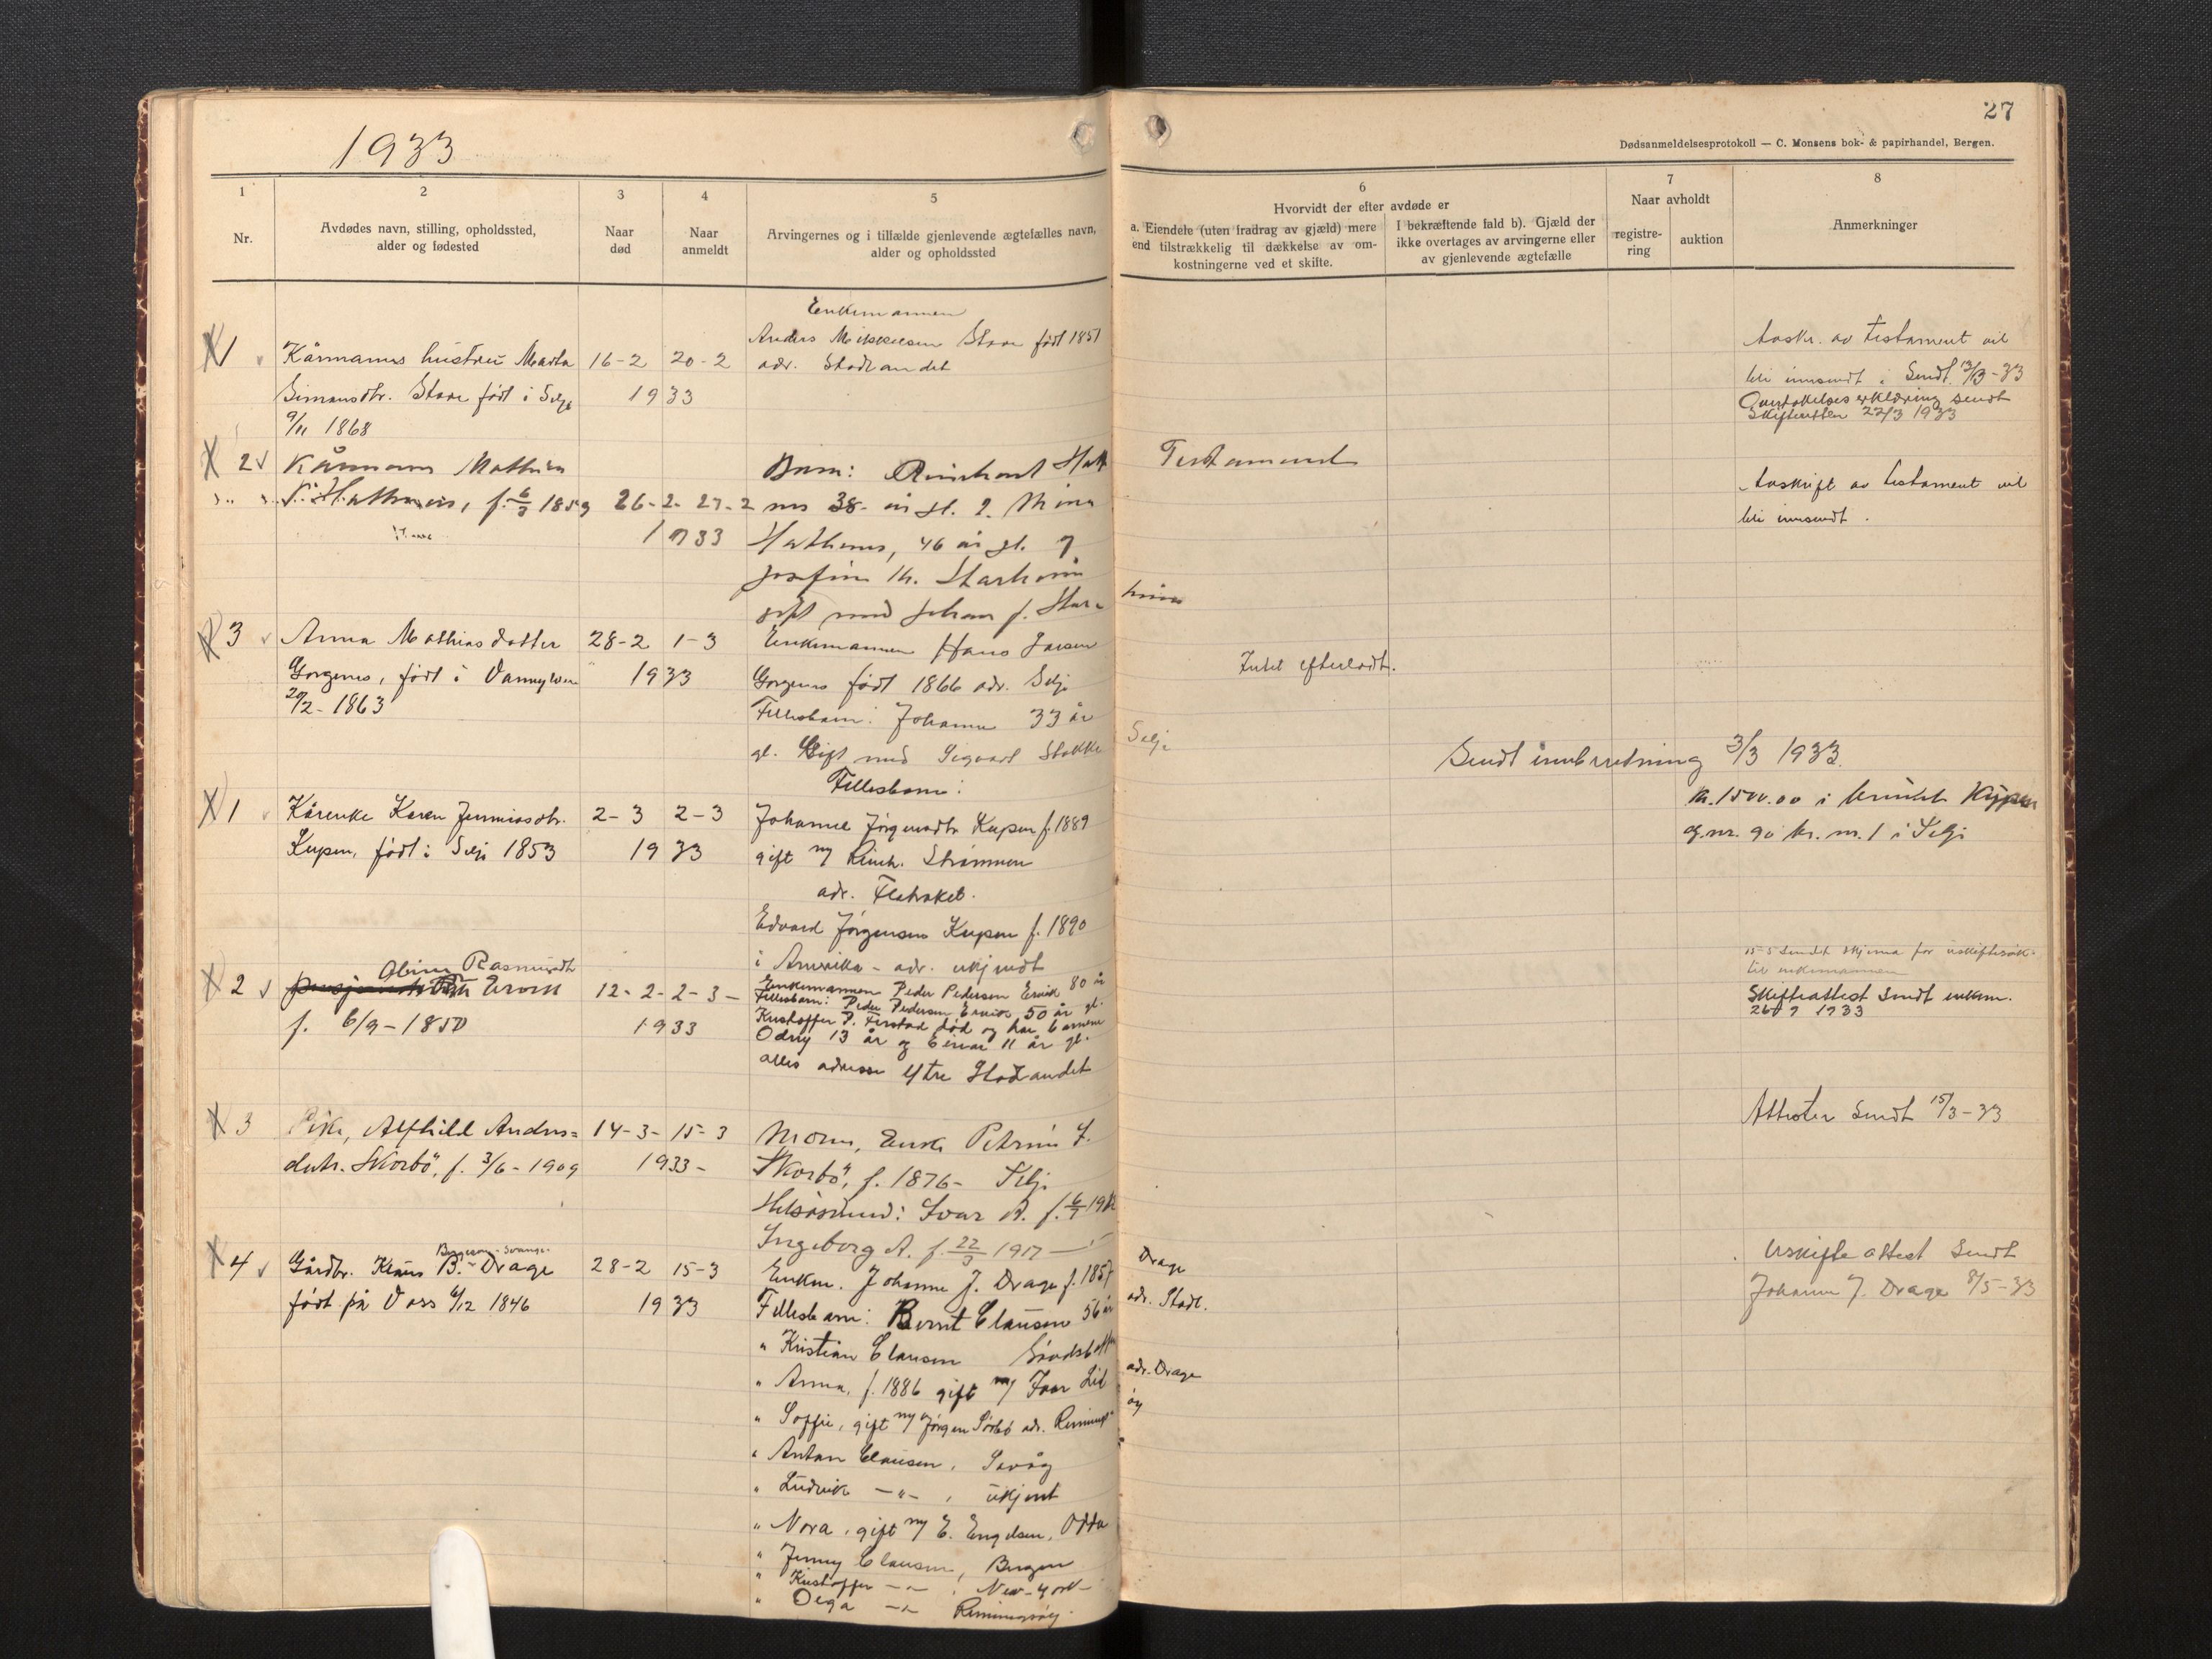 1933
27
Dødsanmeldelsesprotokoll — C. Monsens bok- & papirhandel, Bergen.
1
Nr.
2
Avdødes navn, stilling, opholdssted,
alder og fødested
3
Naar
død
4
Naar
anmeldt
5
Arvingernes og i tilfælde gjenlevende ægtefælles navn,
alder og opholdssted
6
Hvorvidt der efter avdøde er
a. Eiendele (uten fradrag av gjæld) mere
end tilstrækkelig til dækkelse av om-
kostningerne ved et skifte.
I bekræftende fald b). Gjæld der
ikke overtages av arvingerne eller
av gjenlevende ægtefælle
7
Naar avholdt
registre-
ring
auktion
8
Anmerkninger
1
Kårmanns hustru Marta
Simonsdtr. Stave født i Selje
9/11 1868
16-2 20-2
1933
Enkemannen
Anders Mikkelsen Stave født 1851
adr. Stadlandet
Avskr. av testament vil
bli innsendt. Sendt 13/3-33
Overtakelses erklæring sendt
Skifteretten 22/3 1933
2
Kårmann Mathias
f. 6/3 1859
26-2- 27-2
1933
Barn: Reinhart
38 år gl. 2.
46 år gl.
Testament
Avskrift av testament vil
bli innsendt.
3
Anna Mathiasdotter
Gorgenes, født i Vannylven
20/2-1863
28-2 1-3
1933
Enkemannen Hans Larsen
Gorgenes født 1866 adr. Selje
Fellesbarn: Johanne 33 år
gl. Gift med Sigvart Stokke
Selje
Intet efterladt.
Sendt innberetning 3/3 1933.
1
Kårenke Karen Jenniasdtr.
Kupen, født i Selje 1853
2-3 2-3
1933
Fellesbarn:
Johanne Jørgensdtr Kupen f. 1889
gift m/ Reinh. Strømmen
adr. Flatraket.
Edvard Jørgensen Kupen f. 1890
i Amerika - adr. ukjendt
kr. 1500.00 i
g.nr. 90 br. nr. 1 i Selje
2
Rasmusdtr
Ervik
f. 6/9-1850
12-2-2-3-
1933
Enkemannen Peder Pedersen Ervik 80 år
Fellesbarn: Peder Pedersen Ervik 50 år gl.
Kristoffer P. død og har barnene
Odny 13 år og Einar 11 år gl.
alles adresse Ytre Stadlandet
15-5 sendt skjema for uskiftesøk.
til enkemannen
Skifteattest sendt enkem.
1933
3
Pike, Alfhild Anders=
dotr. Skorbö, f. 3/6-1909
14-3- 15-3
1933-
Moren, Enke Petrine
Skorbö, f. 1876- Selje
Helsösken: Ivar A. f. 6/7
Ingeborg A. f. 22/3 1917
Attester sendt 15/3-33
4
Gårdbr. Klaus B. Drage
født på Voss 6/12 1846
28-2 15-3
1933
Enken. Johanne J. Drage f. 1857
Drage
adr. Stadl.
Fellesbarn: Bernt Clausen 56 år
" Kristian Clausen
adr. Drage
" Anna, f. 1886 gift m/ Ivar Lid
" Soffie, gift m/ Jørgen Sørbø adr.
" Anton Clausen,
" Ludvik -"- , ukjent
" Nora, gift m/ E. Engelsen, Odda
" Jenny Clausen, Bergen
" Kristoffer -"- , New-York-
" Olga -"-
Uskifte attest sendt
Johanne J. Drage 8/5-33